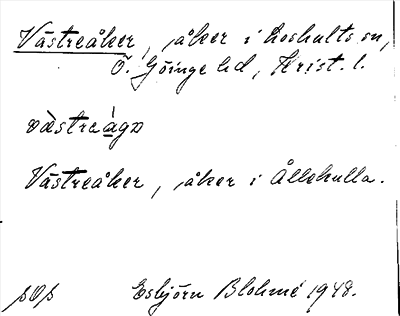 Västreåker, åker i Loshults sn,
Ö. Göinge hd, Krist. l.
Västreåker, åker i Ållehulla.
Esbjörn Blohmé 1948.